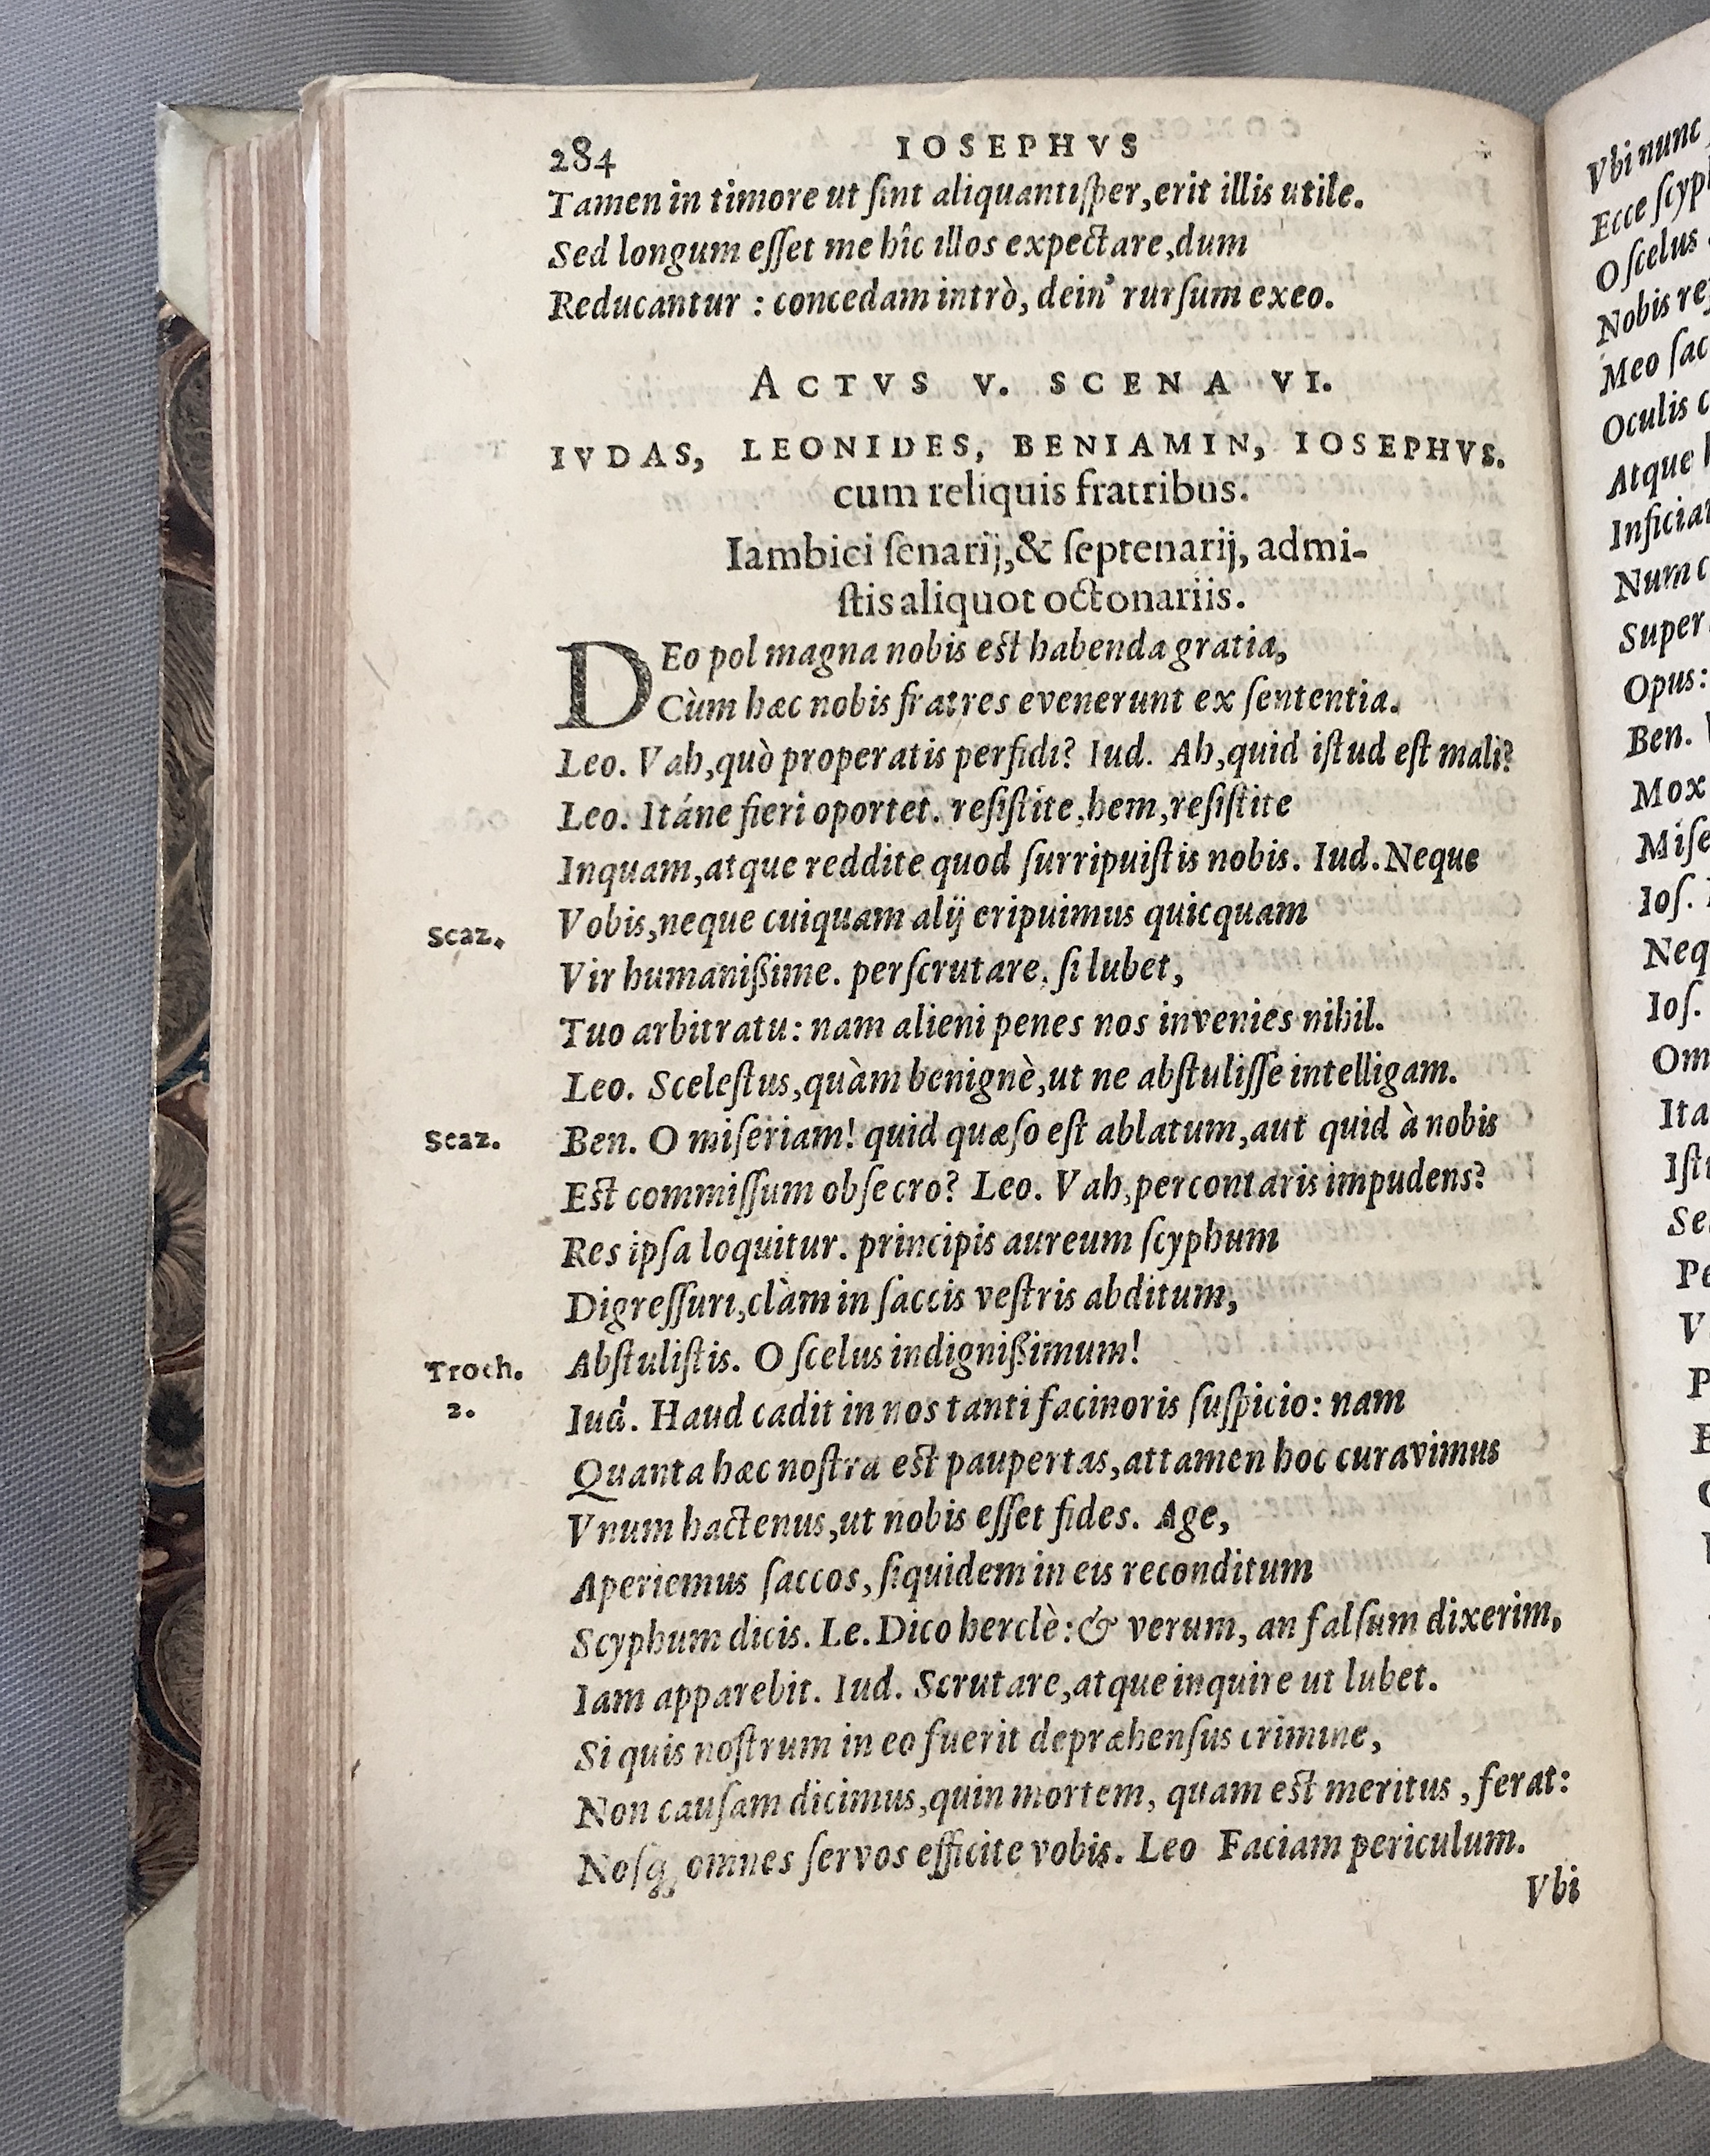 284 IOSEPHVS
Tamen in timore ut ſint aliquantiſper, erit illis utile.
Sed longum eſſet me hîc illos expectare, dum
Reducantur : concedam intrò, dein' rurſum exeo.
ACTVS V. SCENA VI.
IVDAS, LEONIDES, BENIAMIN, IOSEPHVS.
cum reliquis fratribus.
Iambici ſenarij, & ſeptenarij, admi-
ſtis aliquot octonariis.
DEo pol magna nobis est habenda gratia,
Cùm hæc nobis fratres evenerunt ex ſententia.
Leo. Vah, quò properatis perfidi? Iud. Ah, quid iſtud eſt mali?
Leo. Itáne fieri oportet. reſiſtite, hem, reſiſtite
Inquam, atque reddite quod ſurripuiſtis nobis. Iud. Neque
Scaz. Vobis, neque cuiquam alij eripuimus quicquam
Vir humanißime. perſcrutare, ſi lubet,
Tuo arbitratu: nam alieni penes nos invenies nihil.
Leo. Sceleſtus, quàm benignè, ut ne abſtuliſſe intelligam.
Scaz. Ben. O miſeriam! quid quæſo eſt ablatum, aut quid à nobis
Est commiſſum obſecro? Leo. Vah, percontaris impudens?
Res ipſa loquitur. principis aureum ſcyphum
Digreſſuri, clàm in ſaccis veſtris abditum,
Troch. Abſtuliſtis. O ſcelus indignißimum!
2. Iud. Haud cadit in nos tanti facinoris ſuſpicio: nam
Quanta hæc noſtra est paupertas, attamen hoc curavimus
Vnum hactenus, ut nobis eſſet fides. Age,
Aperiemus ſaccos, ſiquidem in eis reconditum
Scyphum dicis. Le. Dico herclè: & verum, an falſum dixerim,
Iam apparebit. Iud. Scrutare, atque inquire ut lubet.
Si quis noſtrum in eo fuerit depræhenſus crimine,
Non cauſam dicimus, quin mortem, quam est meritus, ferat:
Noſq; omnes ſervos efficite vobis. Leo Faciam periculum.
Vbi
Vbi nunc
Ecce
O ſcelus
Nobis
Meo
Oculis
Atque
Num
Super
Opus:
Ben.
Mox
Ioſ.
Ioſ.
Ita